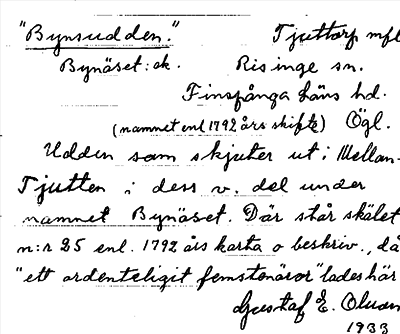 "Bynsudden." Tjuttorp mfl
Bynäset: ek. Risinge sn.
Finspånga läns hd.
(namnet enl 1792 års skifte) Ögl.
Udden som skjuter ut i Mellan-
Tjutten i dess v. del under
namnet Bynäset. Där står skälet
n:r 25 enl. 1792 års karta o beskriv., då
"ett ordenteligit femstenäror" lades här
Gustaf E. Olsson
1933